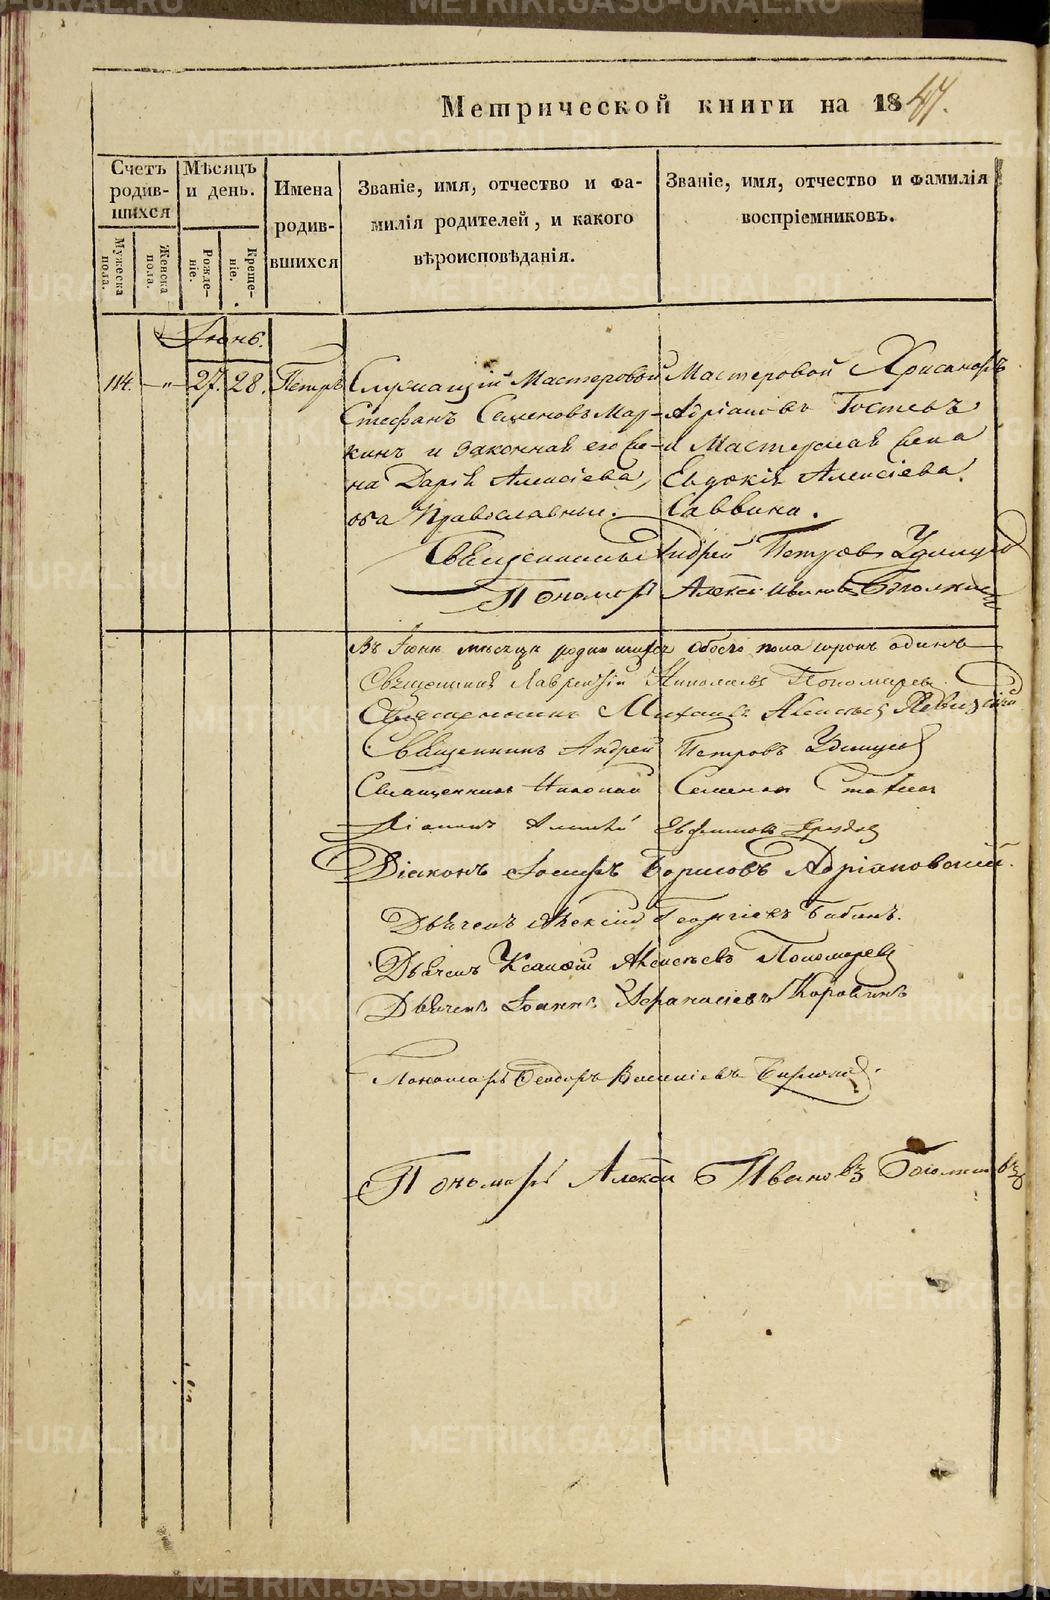 Метрической книги на 1847.
Счетъ родив-шихся
Мѣсяцъ и день.
Имена родив-вшихся
Званіе, имя, отчество и фа-
милія родителей, и какого
вѣроисповѣданія.
Званіе, имя, отчество и фамилія
воспріемниковъ.
Мужеска пола.
Женска пола.
Рожде-ніе.
Креще-ніе.
Іюнь.
114. —„— 27. 28. Петръ
Служащій Мастеровой
Стефанъ Семеновъ Мар-
кинъ и законная его же-
на Дарія Алексіева,
оба Православные.
Мастеровой Хрисанфъ
Адріановъ Гостевъ
и Мастерская жена
Евдокія Алексіева
Саввина.
Священникъ Андрей Петровъ Удинцевъ
Пономарь Алексей Ивановъ
Въ Іюнѣ мѣсяцѣ родившихся обоего пола сорокъ одинъ
Священникъ Лаврентій Николаевъ Пономаревъ
Священникъ Михаилъ Алексѣевъ
Священникъ Андрей Петровъ Удинцевъ
Священникъ Николай Семеновъ
Діаконъ Алексѣй Евфимовъ
Діаконъ Іосифъ Борисовъ Адріановскій.
Дьячекъ Алексій Георгіевъ Бабинъ.
Дьячекъ Алексѣевъ Пономаревъ
Дьячекъ Іоаннъ Афанасіевъ Коровинъ
Пономарь Феодоръ Василіевъ
Пономарь Алексей Ивановъ
METRIKI.GASO-URAL.RU